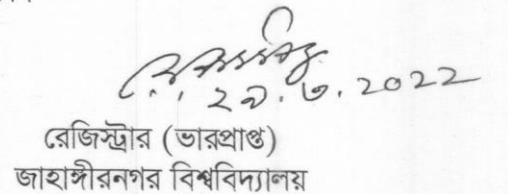 ২৯.৩.2022
রেজিস্ট্রার (ভারপ্রাপ্ত)
জাহাঙ্গীরনগর বিশ্ববিদ্যালয়